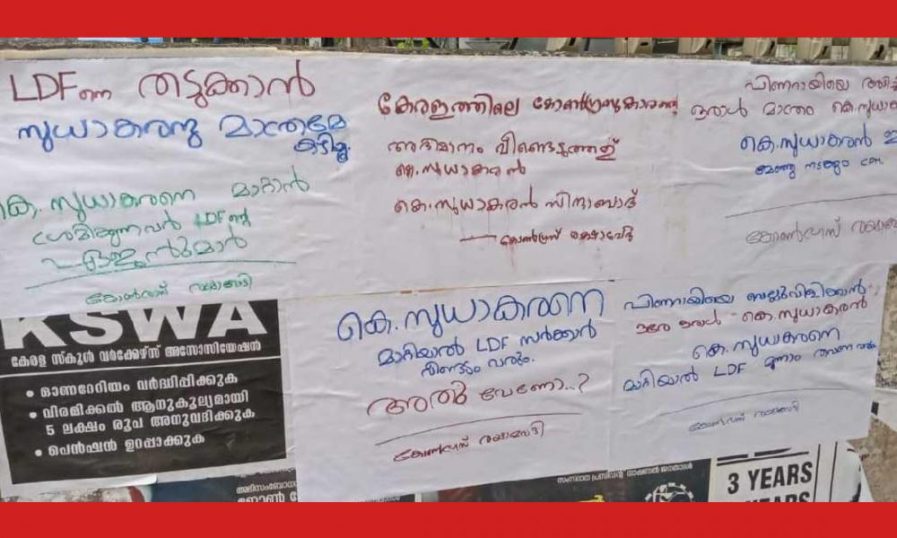 LDF നെ തടുക്കാൻ
സുധാകരനു മാത്രമേ
കഴിയൂ
കെ. സുധാകരനെ മാറ്റാൻ
ശ്രമിക്കുന്നവർ LDF ന്റെ
ഏജന്റുമാർ
കോൺഗ്രസ് രക്ഷാവേദി
കേരളത്തിലെ കോൺഗ്രസുകാരുടെ
അഭിമാനം വീണ്ടെടുത്തത്
കെ.സുധാകരൻ
കെ.സുധാകരൻ സിന്ദാബാദ്
കോൺഗ്രസ് രക്ഷാവേദി
പിണറായിയെ
ഒരാൾ മാത്രം കെ.സുധാ
കെ.സുധാകരൻ
കോൺഗ്രസ്
KSWA
കേരള സ്കൂൾ വർക്കേഴ്സ് അസോസിയേഷൻ
• ഓണറേറിയം വർദ്ധിപ്പിക്കുക
• വിരമിക്കൽ ആനുകൂല്യമായി
5 ലക്ഷം രൂപ അനുവദിക്കുക
• പെൻഷൻ ഉറപ്പാക്കുക
കെ.സുധാകരനെ
മാറ്റിയാൽ LDF സർക്കാർ
വീണ്ടും വരും.
അത് വേണോ...?
കോൺഗ്രസ് രക്ഷാവേദി
പിണറായിയെ വെല്ലുവിളിക്കാൻ
ഒരേ ഒരാൾ - കെ.സുധാകരൻ
കെ.സുധാകരനെ
മാറ്റിയാൽ LDF മൂന്നാം തവണ വരും
കോൺഗ്രസ് രക്ഷാവേദി
3 YEARS
YEARS